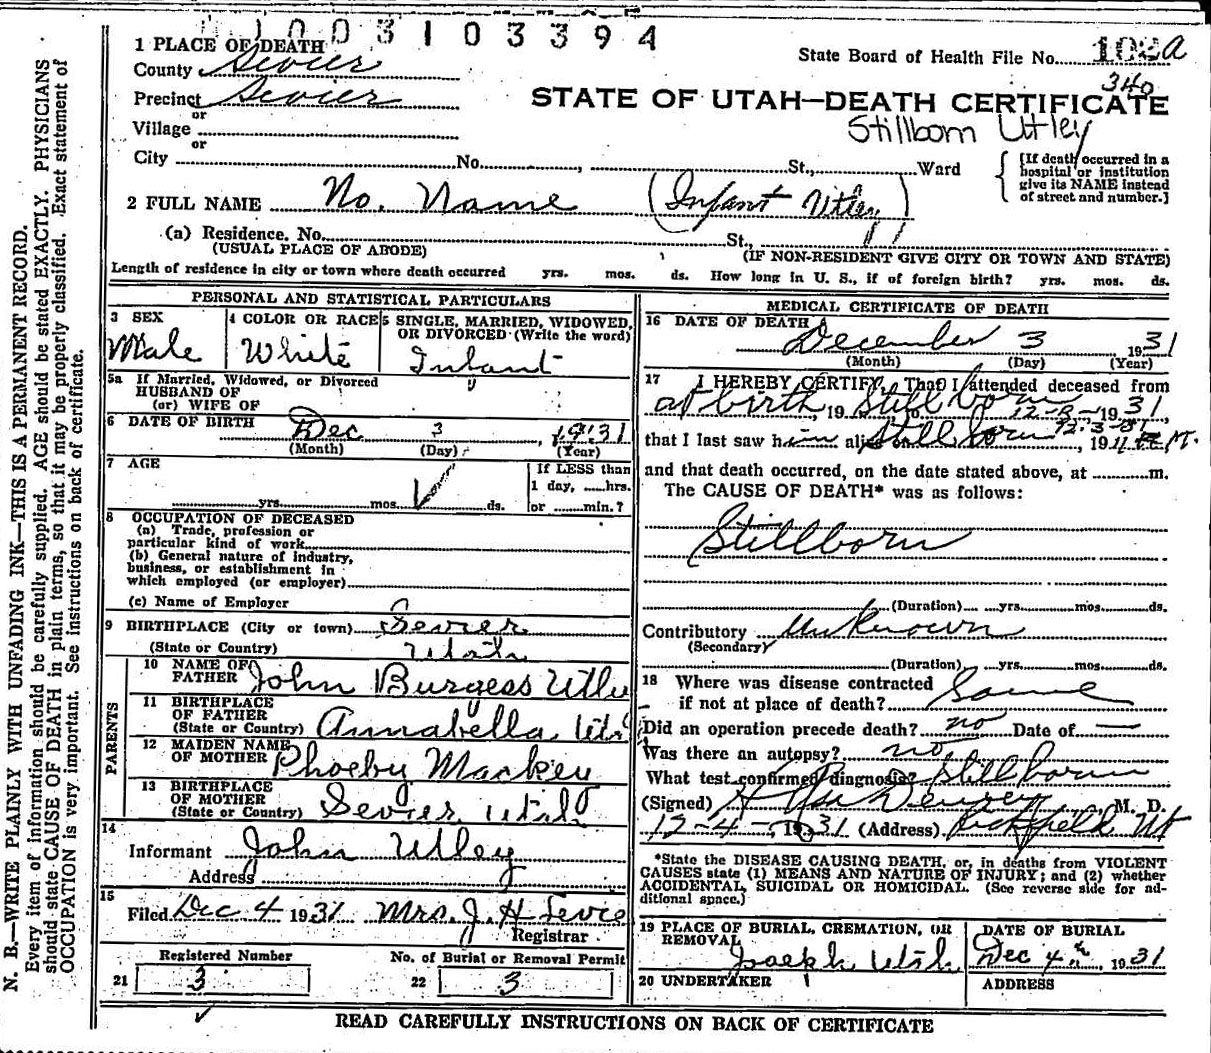 1003103394
1 PLACE OF DEATH
State Board of Health File No. 102a
County Sevier
340
Precinct Sevier
STATE OF UTAH—DEATH CERTIFICATE
or
Stillborn Utley
Village
or
City No. , St., Ward
[If death occurred in a
hospital or institution
give its NAME instead
of street and number.]
2 FULL NAME No. Name (Infant Utley)
(a) Residence. No. St.,
(USUAL PLACE OF ABODE) (IF NON-RESIDENT GIVE CITY OR TOWN AND STATE)
Length of residence in city or town where death occurred yrs. mos. ds. How long in U. S., if of foreign birth? yrs. mos. ds.
PERSONAL AND STATISTICAL PARTICULARS
3 SEX 4 COLOR OR RACE 5 SINGLE, MARRIED, WIDOWED,
OR DIVORCED (Write the word)
Male White Infant
5a If Married, Widowed, or Divorced
HUSBAND OF
(or) WIFE OF
6 DATE OF BIRTH Dec 3, 1931
(Month) (Day) (Year)
7 AGE If LESS than
1 day, hrs.
yrs. mos. ds. or min.?
8 OCCUPATION OF DECEASED
(a) Trade, profession or
particular kind of work
(b) General nature of industry,
business, or establishment in
which employed (or employer)
(c) Name of Employer
9 BIRTHPLACE (City or town) Sevier
(State or Country) Utah
PARENTS
10 NAME OF
FATHER John Burgess Utley
11 BIRTHPLACE
OF FATHER
(State or Country) Annabella Utah
12 MAIDEN NAME
OF MOTHER Phoeby Mackey
13 BIRTHPLACE
OF MOTHER
(State or Country) Sevier Utah
14
Informant John Utley
Address
15
Filed Dec 4 1931 Mrs. J. H. Levie
Registrar
Registered Number No. of Burial or Removal Permit
21 3 22 3
MEDICAL CERTIFICATE OF DEATH
16 DATE OF DEATH
December 3 1931
(Month) (Day) (Year)
17 I HEREBY CERTIFY, That I attended deceased from
at birth, 19 Stillborn to 12-3- 1931
that I last saw him alive on Stillborn 12-3-31, 19 11 M.
and that death occurred, on the date stated above, at m.
The CAUSE OF DEATH* was as follows:
Stillborn
(Duration) yrs. mos. ds.
Contributory Unknown
(Secondary)
(Duration) yrs. mos. ds.
18 Where was disease contracted
if not at place of death? Same
Did an operation precede death? no Date of —
Was there an autopsy? no
What test confirmed diagnosis? Stillborn
(Signed) H Asa Dewey M. D.
12-4-, 1931 (Address) Richfield Ut
*State the DISEASE CAUSING DEATH, or, in deaths from VIOLENT
CAUSES state (1) MEANS AND NATURE OF INJURY; and (2) whether
ACCIDENTAL, SUICIDAL OR HOMICIDAL. (See reverse side for ad-
ditional space.)
19 PLACE OF BURIAL, CREMATION, OR
REMOVAL
Joseph Utah
DATE OF BURIAL
Dec 4th, 1931
20 UNDERTAKER ADDRESS
READ CAREFULLY INSTRUCTIONS ON BACK OF CERTIFICATE
N. B.—WRITE PLAINLY WITH UNFADING INK—THIS IS A PERMANENT RECORD.
Every item of information should be carefully supplied. AGE should be stated EXACTLY. PHYSICIANS
should state CAUSE OF DEATH in plain terms, so that it may be properly classified. Exact statement of
OCCUPATION is very important. See instructions on back of certificate.